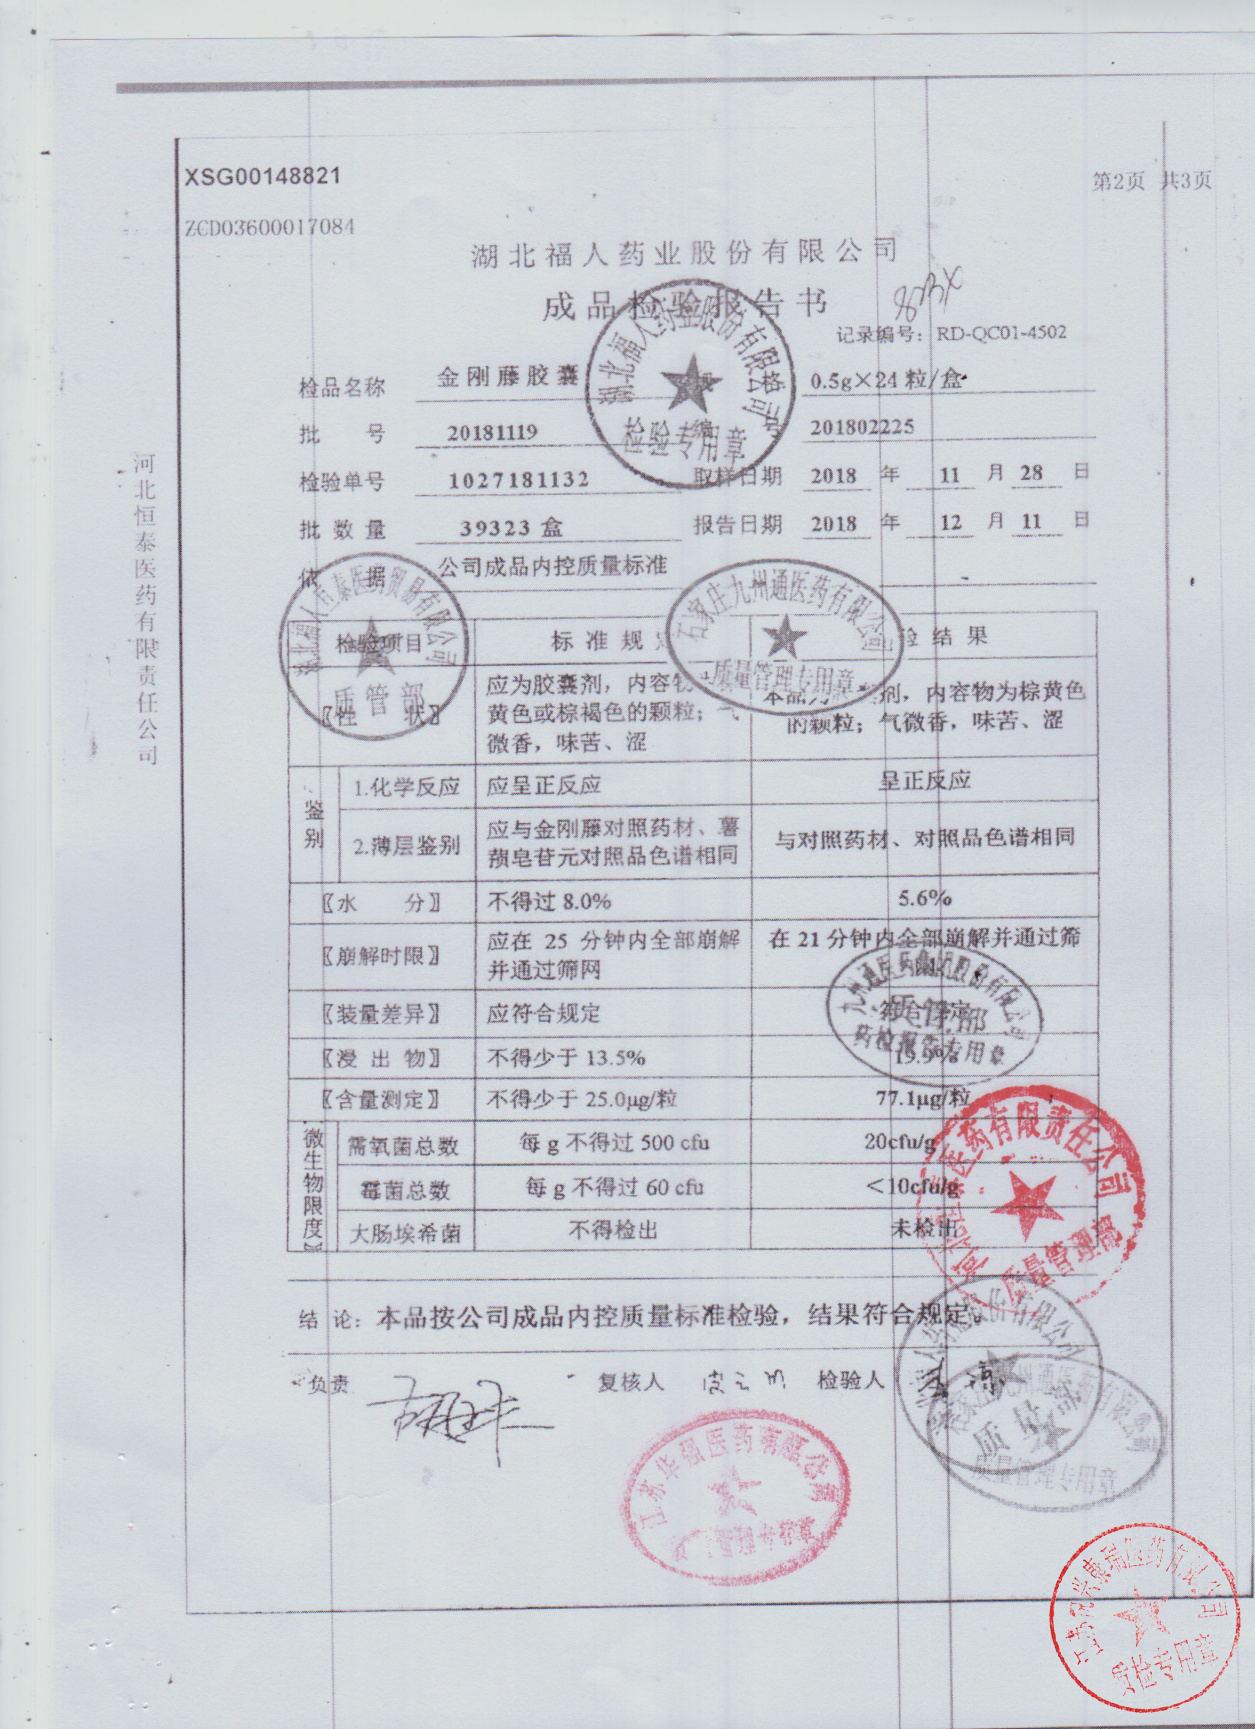 XSG00148821
第2页 共3页
ZCD03600017084
湖北福人药业股份有限公司
成品检验报告书
记录编号: RD-QC01-4502
检品名称 金刚藤胶囊 0.5g×24粒/盒
批 号 20181119 编 号 201802225
检验单号 1027181132 取样日期 2018 年 11 月 28 日
批数量 39323盒 报告日期 2018 年 12 月 11 日
依 据 公司成品内控质量标准
检验项目 标准规 检结果
〖性 状〗 应为胶囊剂，内容物
黄色或棕褐色的颗粒；气
微香，味苦、涩
本品为 剂，内容物为棕黄色
的颗粒；气微香，味苦、涩
鉴别
1.化学反应 应呈正反应 呈正反应
2.薄层鉴别 应与金刚藤对照药材、薯
蓣皂苷元对照品色谱相同
与对照药材、对照品色谱相同
〖水 分〗 不得过8.0% 5.6%
〖崩解时限〗 应在 25 分钟内全部崩解
并通过筛网
在21分钟内全部崩解并通过筛
网
〖装量差异〗 应符合规定 符合规定
〖浸出物〗 不得少于13.5% 19.9%
〖含量测定〗 不得少于25.0μg/粒 77.1μg/粒
微生物限度〗
需氧菌总数 每g不得过500 cfu 20cfu/g
霉菌总数 每g不得过60 cfu <10cfu/g
大肠埃希菌 不得检出 未检出
结 论: 本品按公司成品内控质量标准检验，结果符合规定。
负责 复核人 检验人
河北恒泰医药有限责任公司
湖北福人药业股份有限公司
检验专用章
质管部
石家庄九州通医药有限公司
质量管理专用章
九州通医药集团股份有限公司
质管部
药检报告专用章
医药有限责任公司
质量管理部
石家庄九州通医药有限公司
质量管理专用章
江苏华强医药有限公司
江苏 康瑞医药有限公司
质检专用章